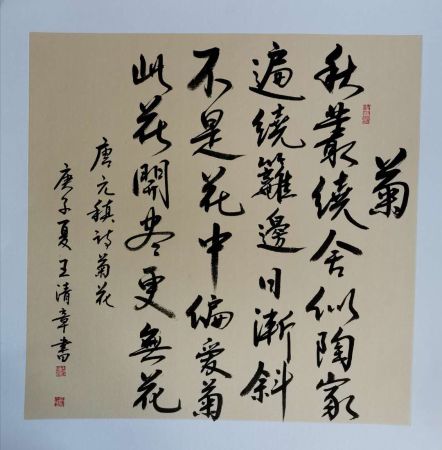 菊
秋叢繞舍似陶家
遍繞籬邊日漸斜
不是花中偏愛菊
此花開盡更無花
唐元稹詩菊花
庚子夏王清章書